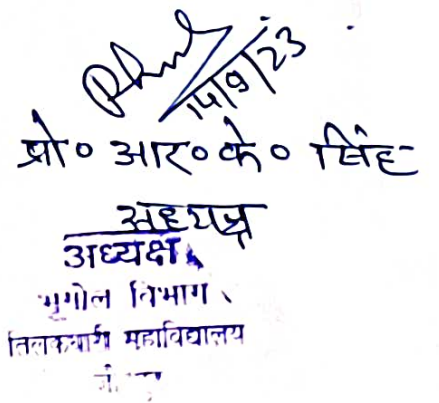 14/9/23
प्रो० आर० के० सिंह
अध्यक्ष
अध्यक्ष
भूगोल विभाग
तिलकधारी महाविद्यालय